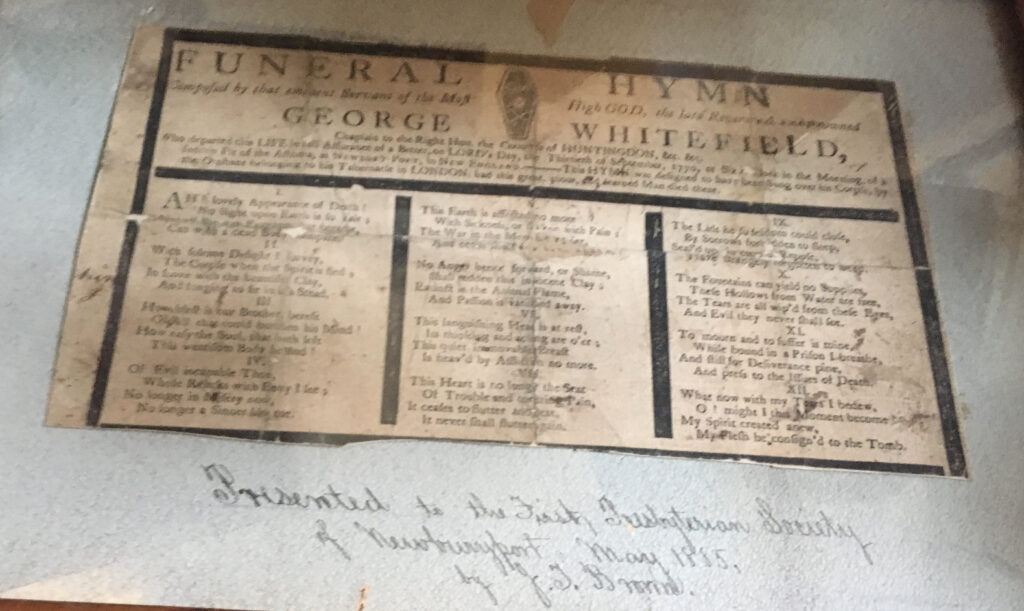 FUNERAL HYMN
Composed by that eminent Servant of the Most High GOD, the late Reverend & renowned
GEORGE WHITEFIELD,
Chaplain to the Right Hon. the Countess of HUNTINGDON, &c. &c.
Who departed this LIFE, in full Assurance of a Better, on LORD's Day, the Thirtieth of September, 1770, at Six o'Clock in the Morning, of a
Fit of the Asthma, at NEWBURY PORT, in NEW ENGLAND This HYMN was designed to have been sung over his Corpse, by
the Orphans belonging to his Tabernacle in LONDON, had this great, pious, and learned Man died there.
I.
AH! lovely Appearance of Death!
No Sight upon Earth is so fair;
Can with a dead Body compare.
II.
With solemn Delight I survey,
The Corpse when the Spirit is fled;
In love with the beautiful Clay,
And longing to lie in its Stead.
III.
How blest is our Brother, bereft
Of all that could burthen his Mind!
How easy the Soul, that hath left
This wearisome Body behind!
IV.
Of Evil incapable Thou,
Whose Relicks with Envy I see;
No longer in Misery now,
No longer a Sinner like me.
V.
This Earth is affected no more
With Sickness, or shaken with Pain;
The War in the Members is o'er,
And never shall
No Anger hence forward, or Shame,
Shall redden this innocent Clay;
Extinct is the Animal Flame,
And Passion is vanish'd away.
VII.
This languishing Head is at rest,
Its thinking and aching are o'er;
This quiet immoveable Breast
Is heav'd by Affliction no more.
VIII.
This Heart is no longer the Seat
Of Trouble and torturing Pain,
It ceases to flutter and beat,
It never shall flutter again.
IX.
The Lids he so seldom could close,
By Sorrows forbidden to sleep,
Seal'd up in eternal Repose,
Have strangely forgotten to weep.
X.
The Fountains can yield no Supplies,
These Hollows from Water are free,
The Tears are all wip'd from these Eyes,
And Evil they never shall see.
XI.
To mourn and to suffer is mine,
While bound in a Prison I breathe,
And still for Deliverance pine,
And press to the Issues of Death.
XII.
What now with my Tears I bedew,
O! might I this Moment become
My Spirit created anew,
My Flesh be consign'd to the Tomb.
Presented to the First Presbyterian Society
of Newburyport, May 1885.
by J.